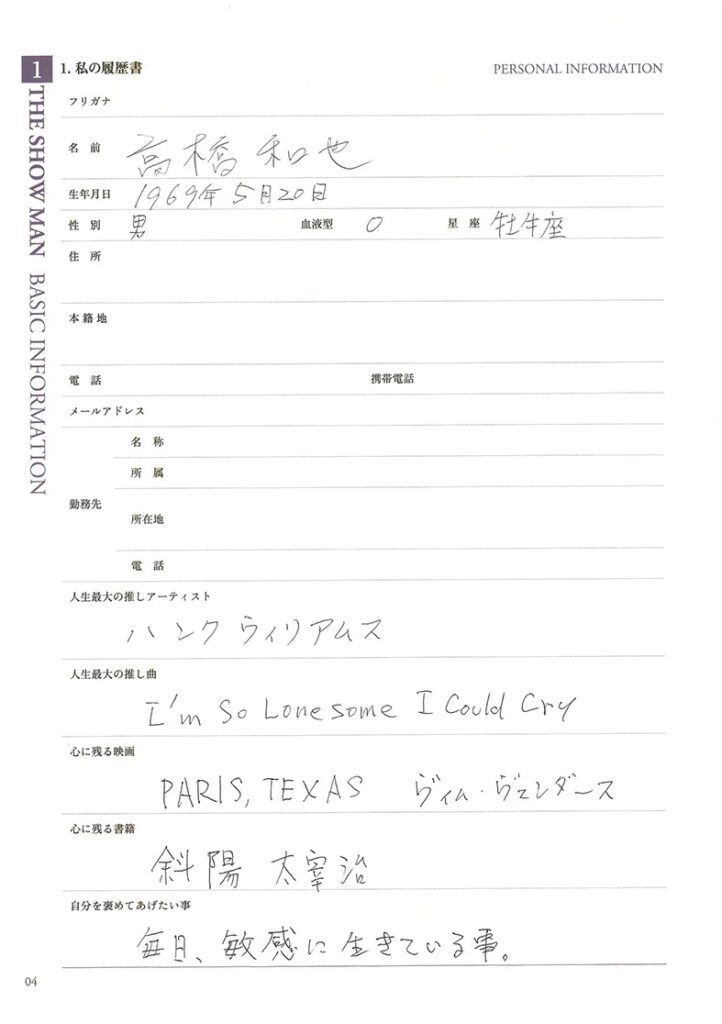 1
1. 私の履歴書
PERSONAL INFORMATION
THE SHOW MAN BASIC INFORMATION
フリガナ
名 前 高橋和也
生年月日 1969年5月20日
性 別 男 血液型 O 星 座 牡牛座
住 所
本籍地
電 話 携帯電話
メールアドレス
勤務先
名 称
所 属
所在地
電 話
人生最大の推しアーティスト
ハンク ウィリアムス
人生最大の推し曲
I'm So Lonesome I Could Cry
心に残る映画
PARIS, TEXAS ヴィム・ヴェンダース
心に残る書籍
斜陽 太宰治
自分を褒めてあげたい事
毎日、敏感に生きている事。
04